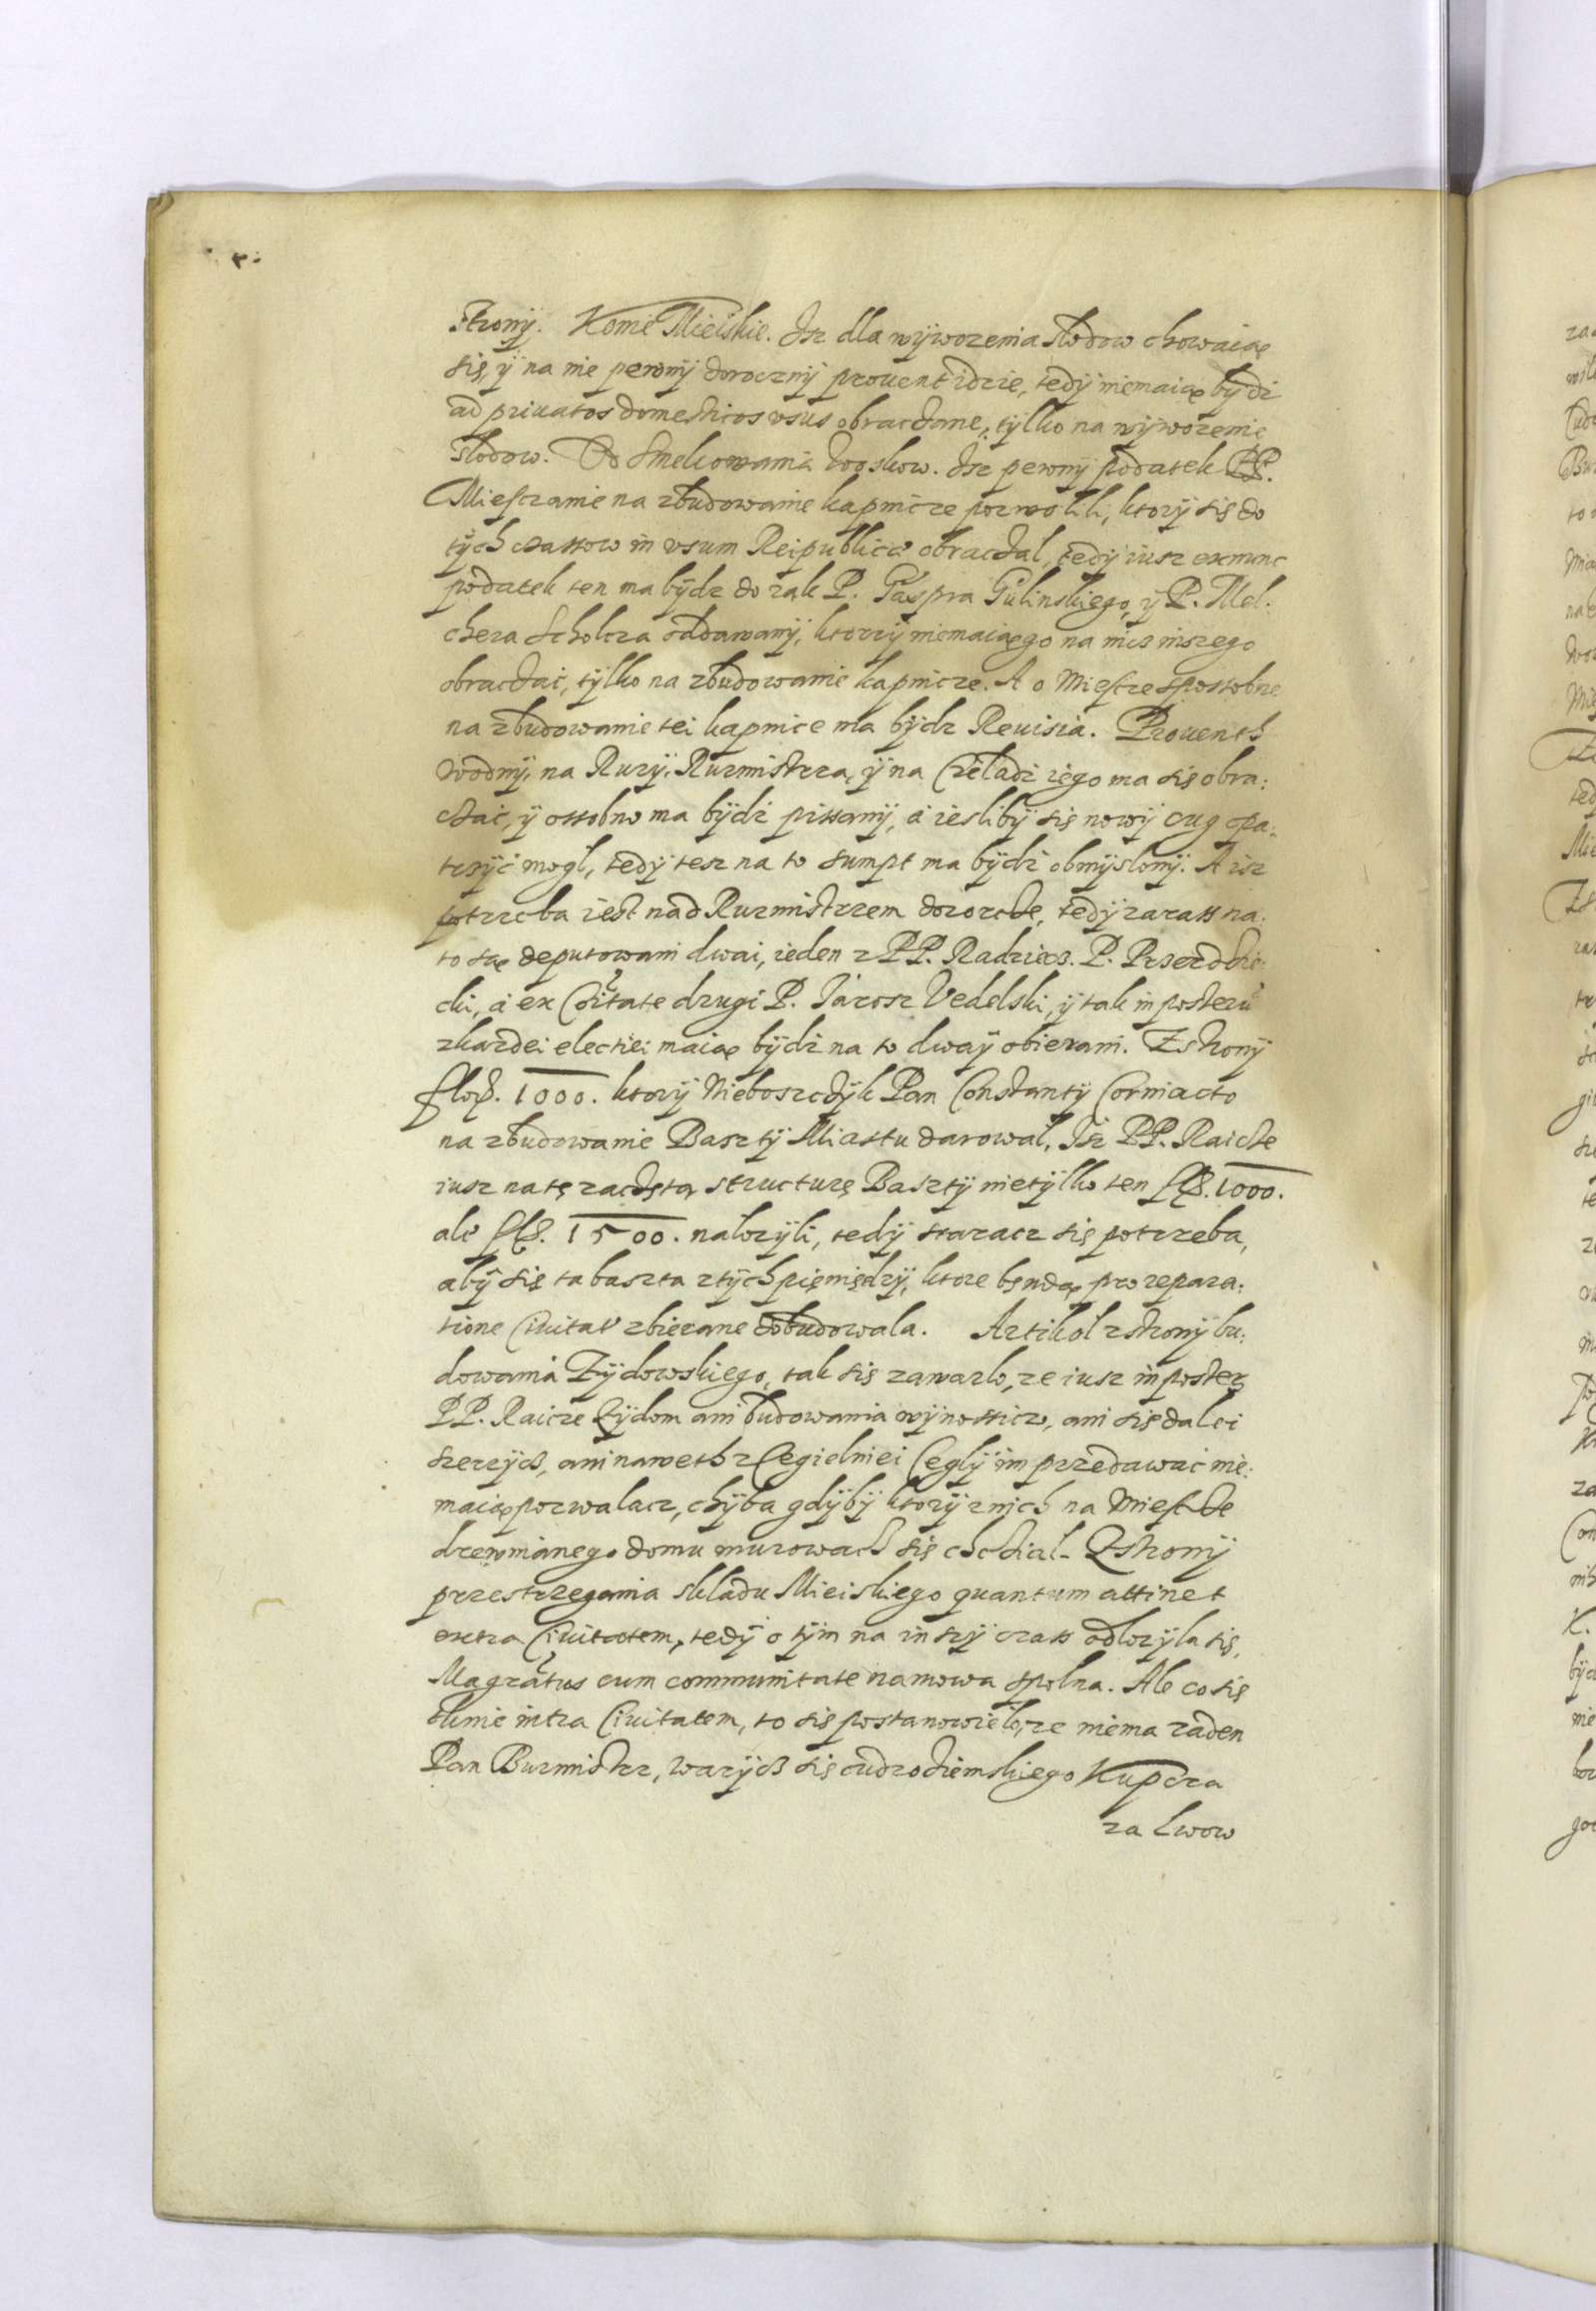 strony. Konie Mieiskie. Isz dla wÿwozenia słodow chowaią
się, ÿ na nie pewnÿ dorocznÿ prouent idzie, tedÿ niemaią bÿdź
ad priuatos domesticos vsus obraczane, tÿlko na wÿwozenie
słodow. Od Smelcowania Woskow. Isz pewnÿ podatek PP.
Miesczanie na zbudowanie kapnicze pozwolili, ktorÿ się do
tÿch czassow in vsum Reipublicæ obraczal, tedÿ iusz exnunc
podatek ten ma bÿdz do rąk P. Gaspra Gulinskiego, ÿ P. Mel:
chera Scholcza oddawanÿ, ktorzÿ niemaiągo na nics inszego
obraczać, tÿlko na zbudowanie kapnicze. A o Miescze sposobne
na zbudowanie tei kapnice ma bÿdz Reuisia. Prouenth
wodnÿ, na Rurÿ, Rurmistrza, ÿ na Czeladź iego ma się obra:
czać, ÿ ossobno ma bÿdź pissanÿ, á ieslibÿ się nowÿ cug opa:
trzÿć mogl, tedÿ tesz na to sumpt ma bÿdź obmÿslonÿ. A isz
potrzeba iest nad Rurmistrzem dozorcze, tedÿ zarass na
to są deputowani dwai, ieden z PP. Radziecz. P.
cki, á ex Coitate drugi P. Jarosz Vedelski, ÿ tak in posterũ
zkazdei electiei maią bÿdź na to dwaÿ obierani. Zstronÿ
flor. 1000. ktorÿ Nieboszczÿk Pan Constantÿ Corniacto
na zbudowanie Basztÿ Miastu darowal, Isz PP. Raicze
iusz na tę zaczętą structurę Basztÿ nietÿlko ten fl. 1000.
ale fl. 1500. nalozÿli, tedÿ staracz się potrzeba,
abÿ się ta baszta z tÿch pięniędzÿ, ktore będą pro repara:
tione Ciuitat zbierane dobudowala. Artikol z stronÿ bu:
dowania Zÿdowskiego, tak się zawarlo, ze iusz in poster
PP. Raicze Zÿdom ani budowania wÿnossicz, ani się dalei
szerzÿcz, ani naweth z Cegielniei Ceglÿ im przedawać nie:
maią pozwalacz, chÿba gdÿbÿ ktorÿ znich na Miescze
drewnianego domu murowach się chczial. Zstronÿ
przestrzegania skladu Mieiskiego quantum attinet
extra Ciuitatem, tedÿ o tÿm na inszÿ czass odlozÿla się,
Magratus cum communitate namowa spolna. Ale co się
tknie intra Ciuitatem, to się postanowielo, ze niema zaden
Pan Burmistrz, warzÿcz się cudzoziemskiego Kupcza
za Lwow